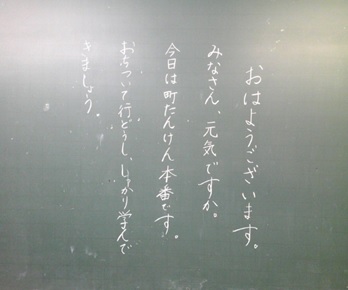 おはようございます。
みなさん、元気ですか。
今日は町たんけん本番です。
おちついて行どうし、しっかり学んで
きましょう。